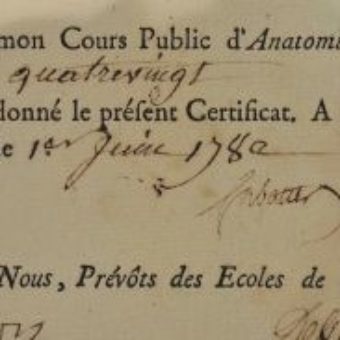 mon Cours Public d'Anatomi
quatrevingt
donné le préſent Certificat. A
e 1er Juin 1782
Nous, Prévôts des Ecoles de